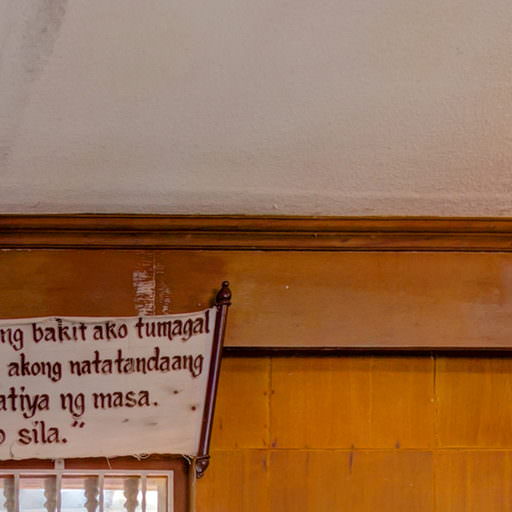 ng bakit ako tumagal
akong natatandaang
atiya ng masa.
o sila."